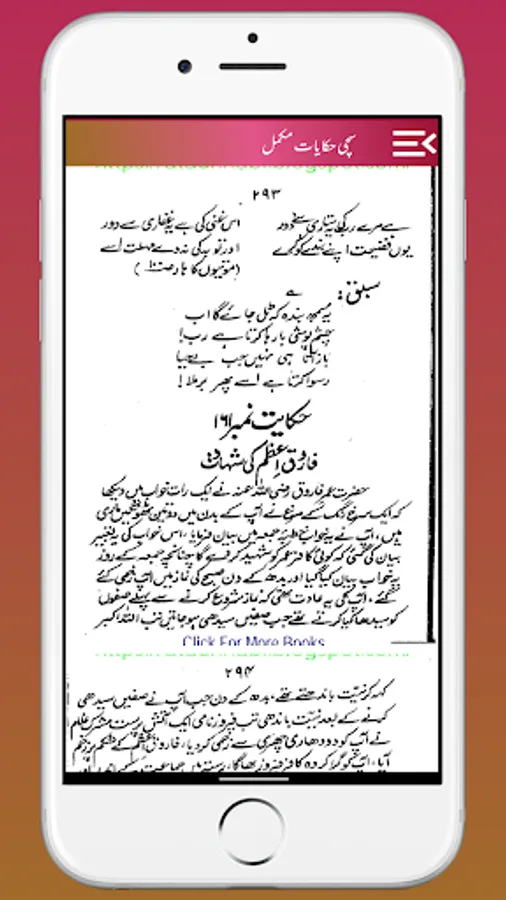 سچی حکایات مکمل
۲۹۳
ہے مرے رب کی یہ ستاری سخنور
اس غنی کی ہے یہ غفاری سے دور
یوں فضیحت اپنے بندے کو کرے
اور توبہ کی نہ دے مہلت اسے
سبق:
یہ سمجھ بندہ کہ ٹل جائے گا اب
چشم پوشی بارہا کرتا ہے رب!
باز آتا ہی نہیں جب بے حیا
رسوا کرتا ہے اسے پھر برملا!
حکایت نمبر ۱۶۱
فاروق اعظم کی شہادت
حضرت عمر فاروق رضی اللہ عنہ نے ایک رات خواب میں دیکھا
کہ ایک سرخ رنگ کے مرغ نے آپ کے بدن میں دو تین ٹھونگیں ماری
ہیں، آپ نے یہ خواب خطبۂ جمعہ میں بیان فرمایا، اس خواب کی یہ تعبیر
بیان کی گئی کہ کوئی کافر عمر کو شہید کر دے گا چنانچہ جمعہ کے روز
یہ خواب بیان کیا گیا اور بدھ کے دن صبح کی نماز میں آپ زخمی کئے
گئے، آپ کی یہ عادت تھی کہ نماز شروع کرنے سے پہلے صفوں
کو سیدھا کیا کرتے تھے جب صفیں سیدھی ہو جاتیں تب اللہ اکبر
Click For More Books
۲۹۴
کہہ کر نیت باندھتے تھے، بدھ کے دن جب آپ نے صفیں سیدھی
کرنے کے بعد نیت باندھی تب فیروز نامی ایک آتش پرست مشرک غلام
نے آپ کو دو دھاری چھری سے زخمی کر دیا، فاروق اعظم کے شکم پر زخم
آیا، آپ کو گرا کر وہ کافر فیروز بھاگا، رستے میں